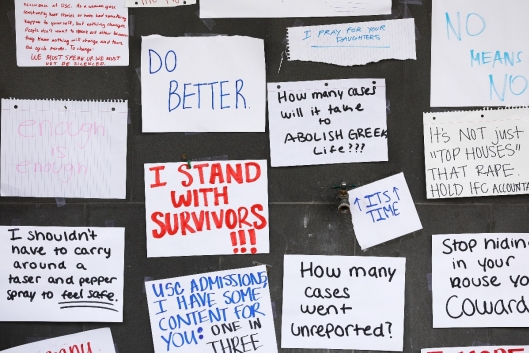 existence at USC. As a woman
constantly hear stories or have had something
happen to yourself, but nothing changes.
People don't want to speak out either because
they know nothing will change and fears
the cycle needs to change.
WE MUST SPEAK UP WE MUST
NOT BE SILENCED.
DO
BETTER.
I PRAY FOR YOUR
DAUGHTERS
NO
MEANS
NO
enough
is
enough
How many cases
will it take
to
ABOLISH GREEK
Life???
IT'S NOT JUST
"TOP HOUSES"
THAT RAPE.
HOLD IFC ACCOUNTA
I STAND
WITH
SURVIVORS
!!!
↑ ITS ↑
TIME
I shouldn't
have to carry
around a
taser and pepper
spray to feel safe.
USC ADMISSIONS,
I HAVE SOME
CONTENT FOR
YOU: ONE IN
THREE
How many
cases
went
unreported?
Stop hidin
in your
house yo
Coward